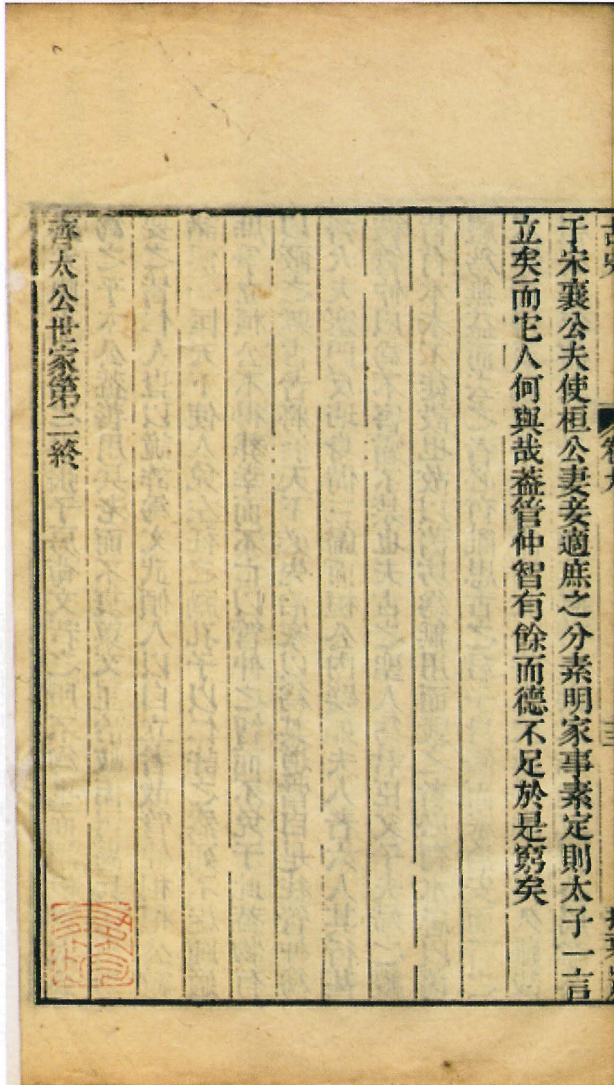 于宋襄公夫使桓公妻妾適庶之分素明家事素定則太子一言
立矣而它人何與哉葢管仲智有餘而德不足於是窮矣
齊太公世家第二終